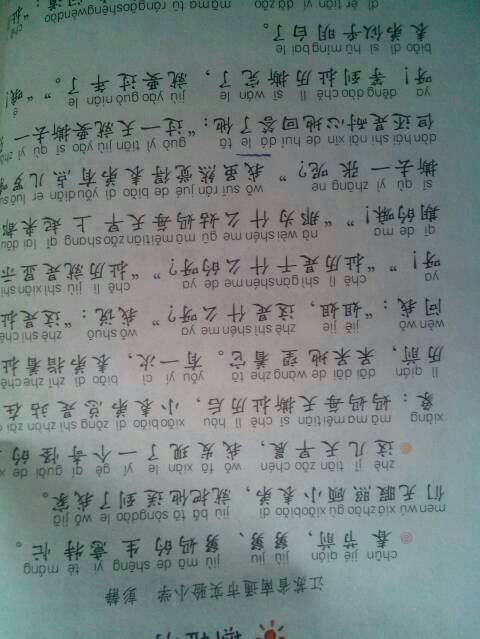 江苏省南通市实验小学 彭静
chūn jié qián jiù jiu jiù mā de shēng yì tè máng
春节前，舅舅、舅妈的生意特忙。
men wú xiá zhào gù xiǎo biǎo dì jiù bǎ tā sòng dào le wǒ jiā
们无暇照顾小表弟，就把他送到了我家。
zhè jǐ tiān zǎo chén wǒ fā xiàn le yí gè qí guài de
这几天早晨，我发现了一个奇怪的
xiàng mā ma měi tiān sī chě lì hòu xiǎo biǎo dì zǒng shì zhàn zài
象：妈妈每天撕扯历后，小表弟总是站在
lì qián dāi dāi de wàng zhe tā yǒu yí cì biǎo dì zhǐ zhe chě
历前，呆呆地望着它。有一次，表弟指着扯
wèn wǒ jiě jie zhè shì shén me ya wǒ shuō zhè shì chě
问我：“姐姐，这是什么呀？”我说：“这是扯
ya chě lì shì gàn shén me de ya chě lì jiù shì xiǎn shì
呀！”“扯历是干什么的呀？”“扯历就是显示
qī de ma nà wèi shén me gū mā měi tiān zǎo shang qǐ lái dōu
期的嘛！”“那为什么姑妈每天早上起来都
sī qù yì zhāng ne wǒ suī rán jué de biǎo dì yǒu diǎn er luō
撕去一张呢？”我虽然觉得表弟有点儿啰
dàn hái shi nài xīn de huí dá le tā guò yì tiān jiù yào sī qù yì
但还是耐心地回答了他：“过一天就要撕去一
ya děng dào chě lì sī wán le jiù yào guò nián le
呀！等到扯历撕完了，就要过年了。”“哦！
biǎo dì sì hū míng bai le
表弟似乎明白了。